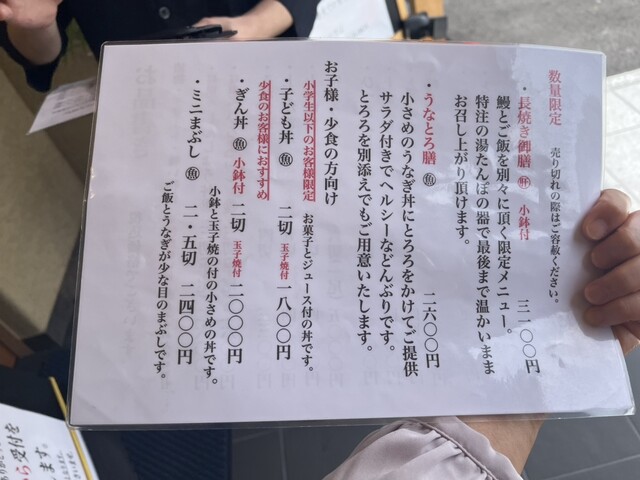 数量限定　売り切れの際はご容赦ください。
・長焼き御膳 ㊋ 小鉢付　三一〇〇円
鰻とご飯を別々に頂く限定メニュー。
特注の湯たんぽの器で最後まで温かいまま
お召し上がり頂けます。
・うなとろ膳 ㊋　二六〇〇円
小さめのうなぎ丼にとろろをかけてご提供
サラダ付きでヘルシーなどんぶりです。
とろろを別添えでもご用意いたします。
お子様・少食の方向け
小学生以下のお客様限定　お菓子とジュース付の丼です。
・子ども丼 ㊋　二切 玉子焼付 一八〇〇円
少食のお客様におすすめ
・ぎん丼 ㊋ 小鉢付 二切 玉子焼付 二〇〇〇円
小鉢と玉子焼の付の小さめの丼です。
・ミニまぶし ㊋　二・五切　二四〇〇円
ご飯とうなぎが少な目のまぶしです。
受付を
ます。